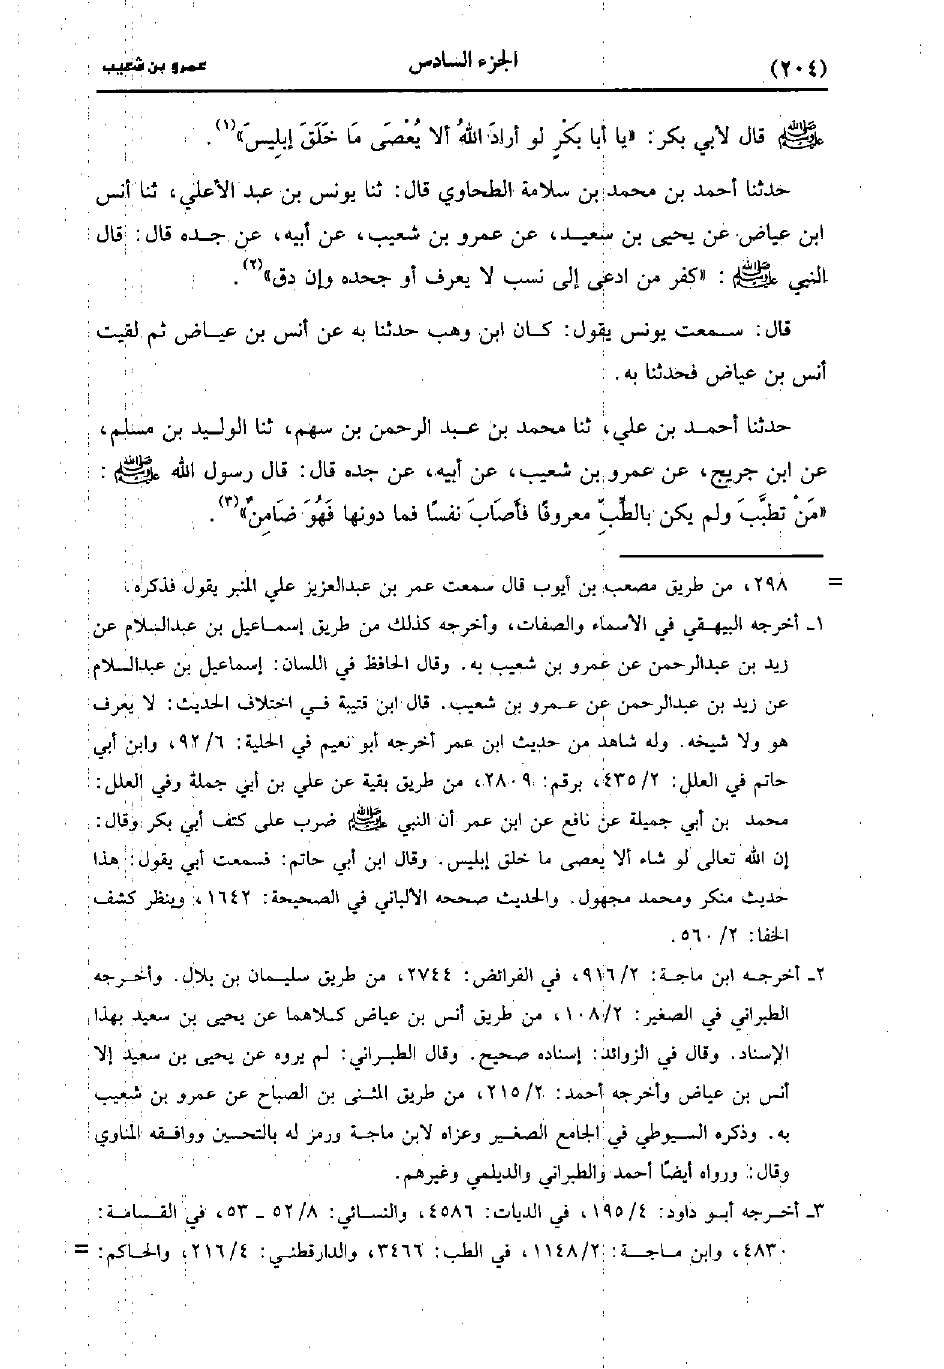 (٢٠٤) الجزء السادس عمرو بن شعيب
ﷺ قال لأبي بكر: «يا أبا بَكْرٍ لو أرادَ اللهُ ألا يُعْصَى مَا خَلَقَ إبليسَ»(١).
حدثنا أحمد بن محمد بن سلامة الطحاوي قال: ثنا يونس بن عبد الأعلي، ثنا أنس
ابن عياض عن يحيى بن سعيد، عن عمرو بن شعيب، عن أبيه، عن جده قال: قال
النبي ﷺ : «كفر من ادعى إلى نسب لا يعرف أو جحده وإن دق»(٢).
قال: سمعت يونس يقول: كان ابن وهب حدثنا به عن أنس بن عياض ثم لقيت
أنس بن عياض فحدثنا به.
حدثنا أحمد بن علي، ثنا محمد بن عبد الرحمن بن سهم، ثنا الوليد بن مسلم،
عن ابن جريج، عن عمرو بن شعيب، عن أبيه، عن جده قال: قال رسول الله ﷺ :
«مَنْ تطبَّبَ ولم يكن بالطبِّ معروفًا فأصَابَ نفسًا فما دونها فَهُوَ ضَامِنٌ»(٣).
= ٢٩٨، من طريق مصعب بن أيوب قال سمعت عمر بن عبدالعزيز علي المنبر يقول فذكره.
١ـ أخرجه البيهقي في الأسماء والصفات، وأخرجه كذلك من طريق إسماعيل بن عبدالسلام عن
زيد بن عبدالرحمن عن عمرو بن شعيب به. وقال الحافظ في اللسان: إسماعيل بن عبدالسلام
عن زيد بن عبدالرحمن عن عمرو بن شعيب. قال ابن قتيبة في اختلاف الحديث: لا يعرف
هو ولا شيخه. وله شاهد من حديث ابن عمر أخرجه أبو نعيم في الحلية: ٩٢/٦، وابن أبي
حاتم في العلل: ٤٣٥/٢، برقم: ٢٨٠٩، من طريق بقية عن علي بن أبي جملة وفي العلل:
محمد بن أبي جميلة عن نافع عن ابن عمر أن النبي ﷺ ضرب على كتف أبي بكر وقال:
إن الله تعالى لو شاء ألا يعصى ما خلق إبليس. وقال ابن أبي حاتم: فسمعت أبي يقول: هذا
حديث منكر ومحمد مجهول. والحديث صححه الألباني في الصحيحة: ١٦٤٢، وينظر كشف
الخفا: ٥٦٠/٢.
٢ـ أخرجه ابن ماجة: ٩١٦/٢، في الفرائض: ٢٧٤٤، من طريق سليمان بن بلال. وأخرجه
الطبراني في الصغير: ١٠٨/٢، من طريق أنس بن عياض كلاهما عن يحيى بن سعيد بهذا
الإسناد. وقال في الزوائد: إسناده صحيح. وقال الطبراني: لم يروه عن يحيى بن سعيد إلا
أنس بن عياض وأخرجه أحمد: ٢١٥/٢، من طريق المثنى بن الصباح عن عمرو بن شعيب
به. وذكره السيوطي في الجامع الصغير وعزاه لابن ماجة ورمز له بالتحسين ووافقه المناوي
وقال: ورواه أيضًا أحمد والطبراني والديلمي وغيرهم.
٣ـ أخرجه أبو داود: ١٩٥/٤، في الديات: ٤٥٨٦، والنسائي: ٥٢/٨ ـ ٥٣، في القسامة:
٤٨٣٠، وابن ماجة: ١١٤٨/٢، في الطب: ٣٤٦٦، والدارقطني: ٢١٦/٤، والحاكم: =